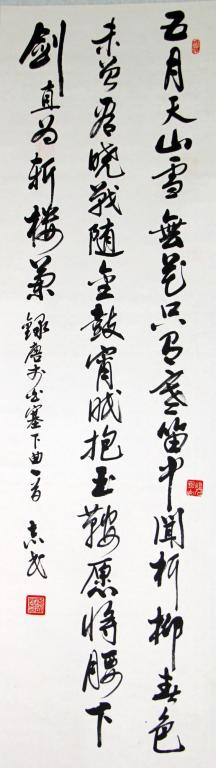 五月天山雪無花只有寒笛中聞折柳春色
未曾看曉戰随金鼓宵眠抱玉鞍愿将腰下
劍直为斬楼蘭
録唐李白塞下曲一首